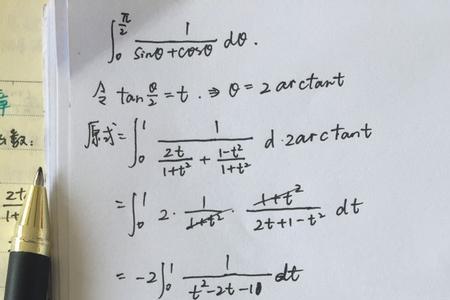 ∫₀^(π/2) 1/(sinθ+cosθ) dθ.
令 tan θ/2 = t. ⇒ θ = 2 arctant
原式 = ∫₀¹ 1/(2t/(1+t²) + (1-t²)/(1+t²)) d·2arctant
= ∫₀¹ 2· 1/(1+t²) · (1+t²)/(2t+1-t²) dt
= -2∫₀¹ 1/(t²-2t-1) dt
数:
2t